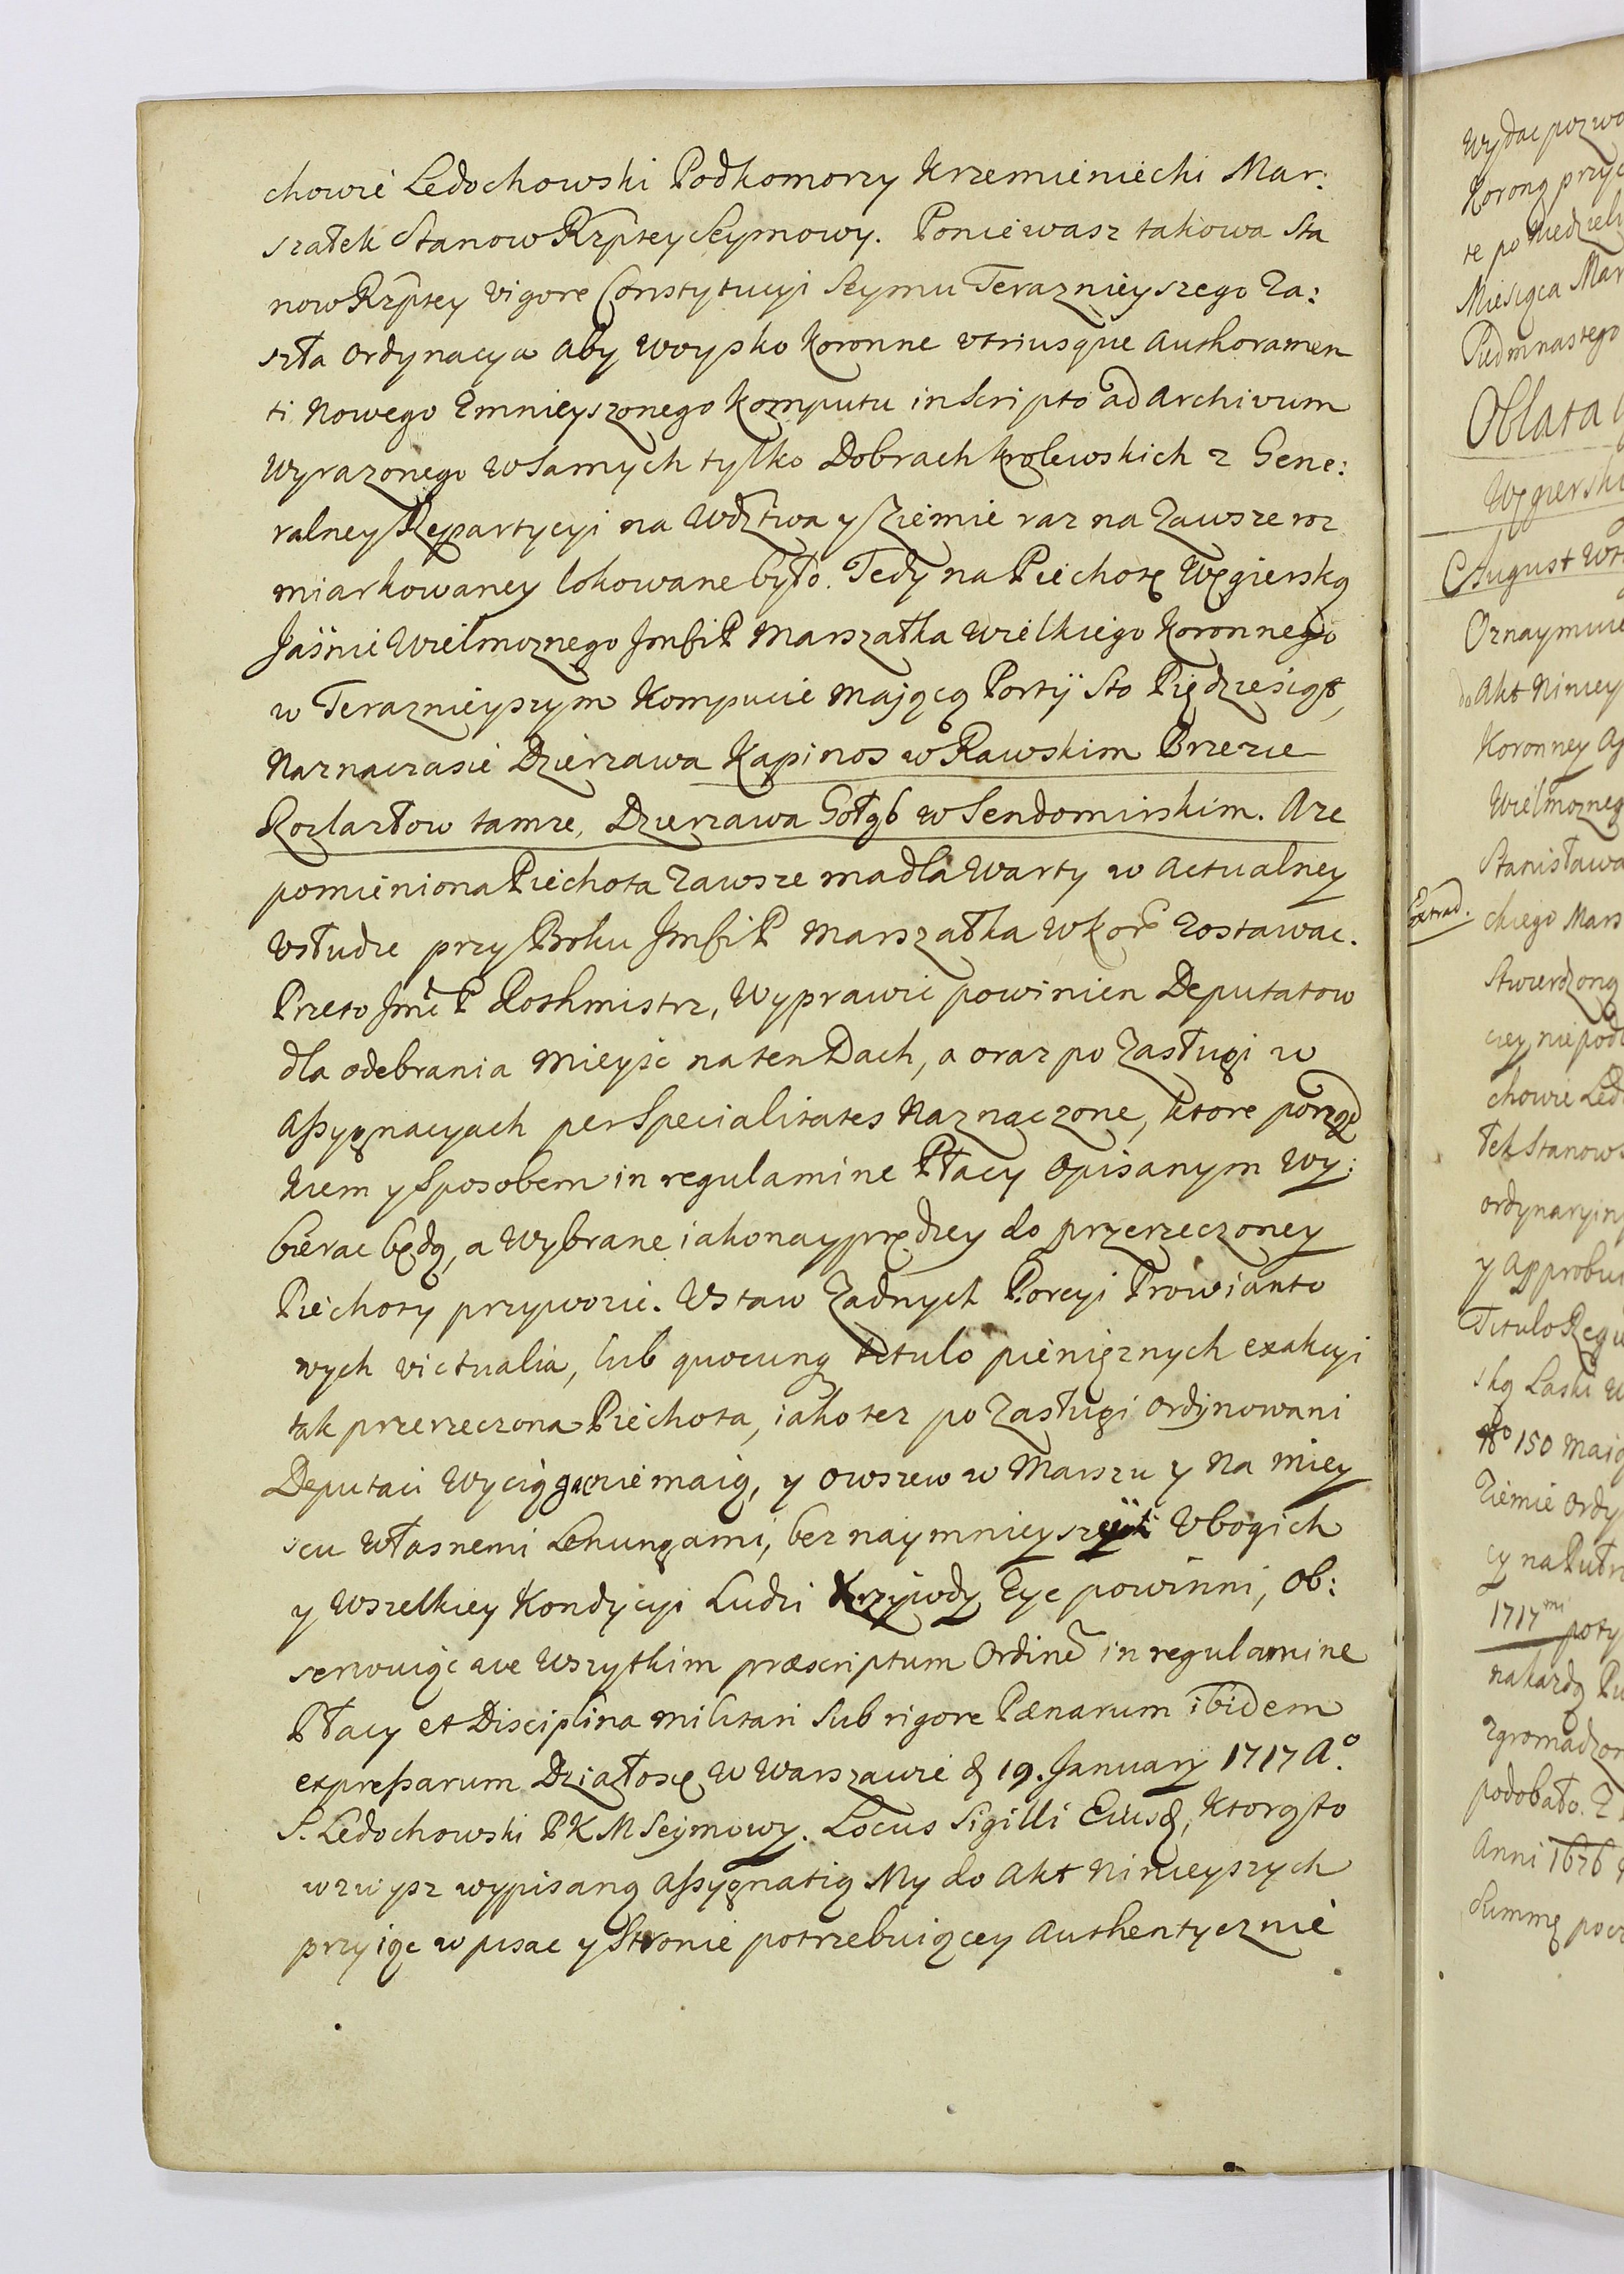 chowie Ledochowski Podkomorzy Krzemieniecki Mar:
szałek Stanow Rzptey Seymowy. Poniewasz takowa Sta
now Rzptey vigore Constytucyi Seymu Teraznieyszego Za:
szła ordynacya aby woysko Koronne vtriusque Authoramen
ti Nowego Zmnieyszonego Komputu inscripto ad Archivum
wyrazonego w samych tylko Dobrach Krolewskich z Gene:
ralney Repartycyi na Wdztwa y Ziemie raz na Zawsze roz
miarkowaney lokowane było. Tedy na Piechotę Węgierską
Jaśnie Wielmoznego Jmści P Marszałka Wielkiego Koronnego
w Teraznieyszym Kompucie mającą Portij Sto Piędziesiąt,
Naznaczasie Dzierzawa Kapinos w Rawskim Brzezie
Kozlarzłow tamze, Dzierzawa Gołąb w Sendomirskim. Aze
pomieniona Piechota Zawsze ma dla Warty w actualney
Vsłudze przy Boku Jmści P Marszałka W Kore Zostawac.
Przeto Jmć P Rothmistrz, Wyprawić powinien Deputatow
dla odebrania Mieysc na ten Dach, a oraz po Zasługi w
Assygnacyach per Specialitates Naznaczone, ktore porząd
kiem y Sposobem in regulamine Płacy opisanym wy:
bierac będą, a wybrane iako nayprędzey do przerzeczoney
Piechoty przywozic. Vstaw Zadnych Porcyi Prowianto
wych victualia, lub quocunq titulo pienięznych exakcyi
tak przerzeczona Piechota, iako tez po Zasługi ordynowani
Deputaci Wyciągac nie maią, y owszem w Marszu y Na miey
scu własnemi Lenungami, bez naymnieyszey Vbogich
y Wszelkiey Kondycyi Ludzi Krzywdy Zyc powinni, Ob:
serwuiąc we wszytkim præscriptum Ordine in regulamine
Płacy et Disciplina militari Sub rigore Pænarum ibidem
expressarum Działosię w Warszawie d 19. January 1717 Ao.
S. Ledochowski P K M Seymowy. Locus Sigilli Eiusd, Ktorąto
wzwysz wypisaną Assygnatią My do Akt Ninieyszych
przyiąc w pisac y Stronie potrzebuiącey Authentycznie
Wydac pozwo
Koroną przyc
te po Niedziel
Miesiąca Mar
Piedmnastego
Oblata
Węgierski
August Wt
Oznaymuie
do Akt Niniey
Koronney
Wielmozneg
Stanisława
Extrad.
ckiego Mars
Stwierdzoną
cey nie pod
chowie Led
łek Stanow
ordynaryin
y Approbu
Titulo Regu
ską Laski
No 150 Maią
Ziemie Ordy
cy na Pułro
1717mi poty
na kazdą
zgromadzon
podobało. Z
Anni 1676
Summę pocz